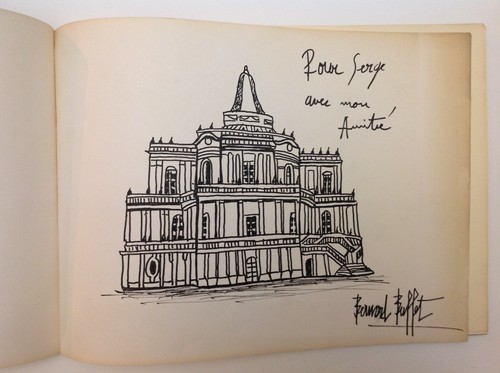 Pour Serge
avec mon
Amitié
Bernard Buffet